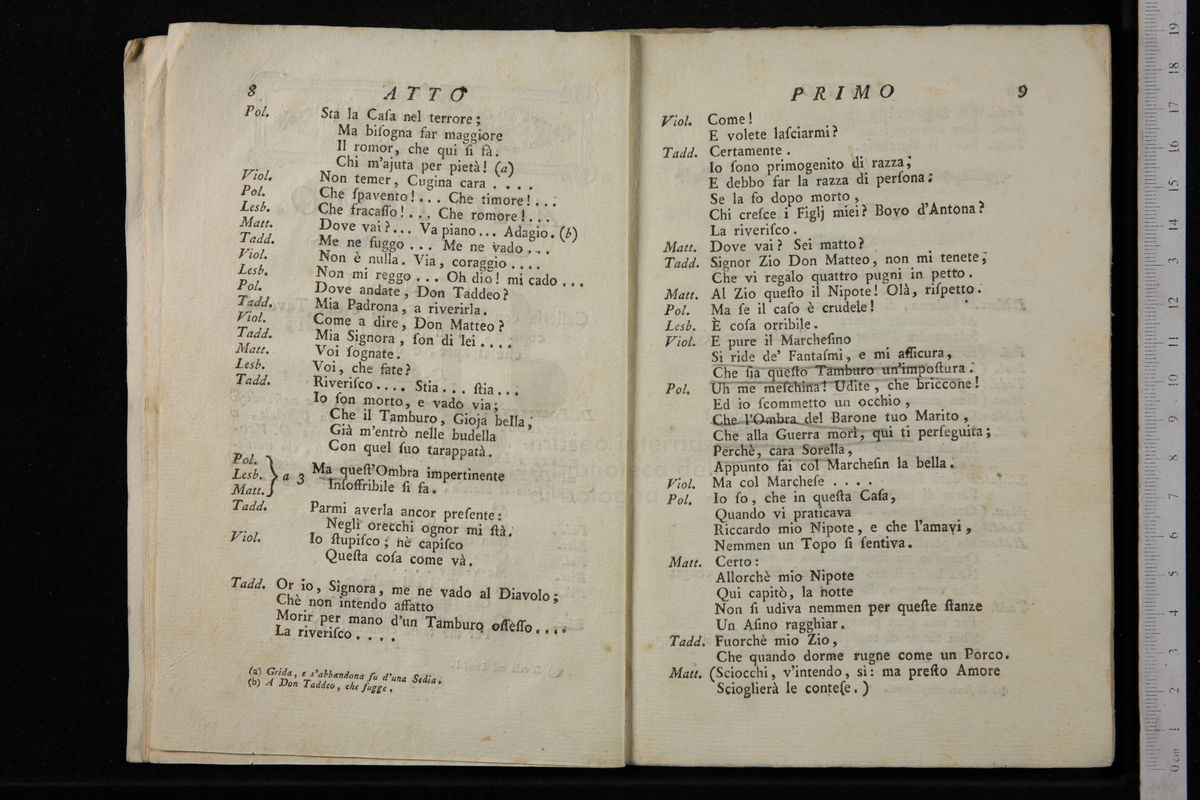 8 ATTO
Pol. Sta la Caſa nel terrore;
Ma biſogna far maggiore
Il romor, che qui ſi fà.
Chi m'ajuta per pietà! (a)
Viol. Non temer, Cugina cara . . . .
Pol. Che ſpavento! . . . Che timore! . . .
Lesb. Che fracaſſo! . . . Che romore! . . .
Matt. Dove vai? . . . Va piano . . . Adagio. (b)
Tadd. Me ne fuggo . . . Me ne vado . . .
Viol. Non è nulla. Via, coraggio . . . .
Lesb. Non mi reggo . . . Oh dio! mi cado . . .
Pol. Dove andate, Don Taddeo?
Tadd. Mia Padrona, a riverirla.
Viol. Come a dire, Don Matteo?
Tadd. Mia Signora, ſon di lei . . . .
Matt. Voi ſognate.
Lesb. Voi, che fate?
Tadd. Riveriſco . . . . Stia . . . ſtia . . .
Io ſon morto, e vado via;
Che il Tamburo, Gioja bella,
Già m'entrò nelle budella
Con quel ſuo tarappatà.
Pol.
Lesb. a 3 Ma queſt'Ombra impertinente
Matt. Inſoffribile ſi fa.
Tadd. Parmi averla ancor preſente:
Negli orecchi ognor mi ſtà.
Viol. Io ſtupiſco; nè capiſco
Queſta coſa come và.
Tadd. Or io, Signora, me ne vado al Diavolo;
Chè non intendo affatto
Morir per mano d'un Tamburo oſſeſſo . . . .
La riveriſco . . . .
(a) Grida, e s'abbandona ſu d'una Sedia.
(b) A Don Taddeo, che fugge.
PRIMO 9
Viol. Come!
E volete laſciarmi?
Tadd. Certamente.
Io ſono primogenito di razza;
E debbo far la razza di perſona:
Se la fo dopo morto,
Chi creſce i Figlj miei? Bovo d'Antona?
La riveriſco.
Matt. Dove vai? Sei matto?
Tadd. Signor Zio Don Matteo, non mi tenete;
Che vi regalo quattro pugni in petto.
Matt. Al Zio queſto il Nipote! Olà, riſpetto.
Pol. Ma ſe il caſo è crudele!
Lesb. È coſa orribile.
Viol. E pure il Marcheſino
Si ride de' Fantaſmi, e mi aſſicura,
Che ſia queſto Tamburo un'impoſtura.
Pol. Uh me meſchina! Udite, che briccone!
Ed io ſcommetto un occhio,
Che l'Ombra del Barone tuo Marito,
Che alla Guerra morì, qui ti perſeguita;
Perchè, cara Sorella,
Appunto fai col Marcheſin la bella.
Viol. Ma col Marcheſe . . . .
Pol. Io ſo, che in queſta Caſa,
Quando vi praticava
Riccardo mio Nipote, e che l'amavi,
Nemmen un Topo ſi ſentiva.
Matt. Certo:
Allorchè mio Nipote
Qui capitò, la notte
Non ſi udiva nemmen per queſte ſtanze
Un Aſino ragghiar.
Tadd. Fuorchè mio Zio,
Che quando dorme rugne come un Porco.
Matt. (Sciocchi, v'intendo, sì: ma preſto Amore
Scioglierà le conteſe.)